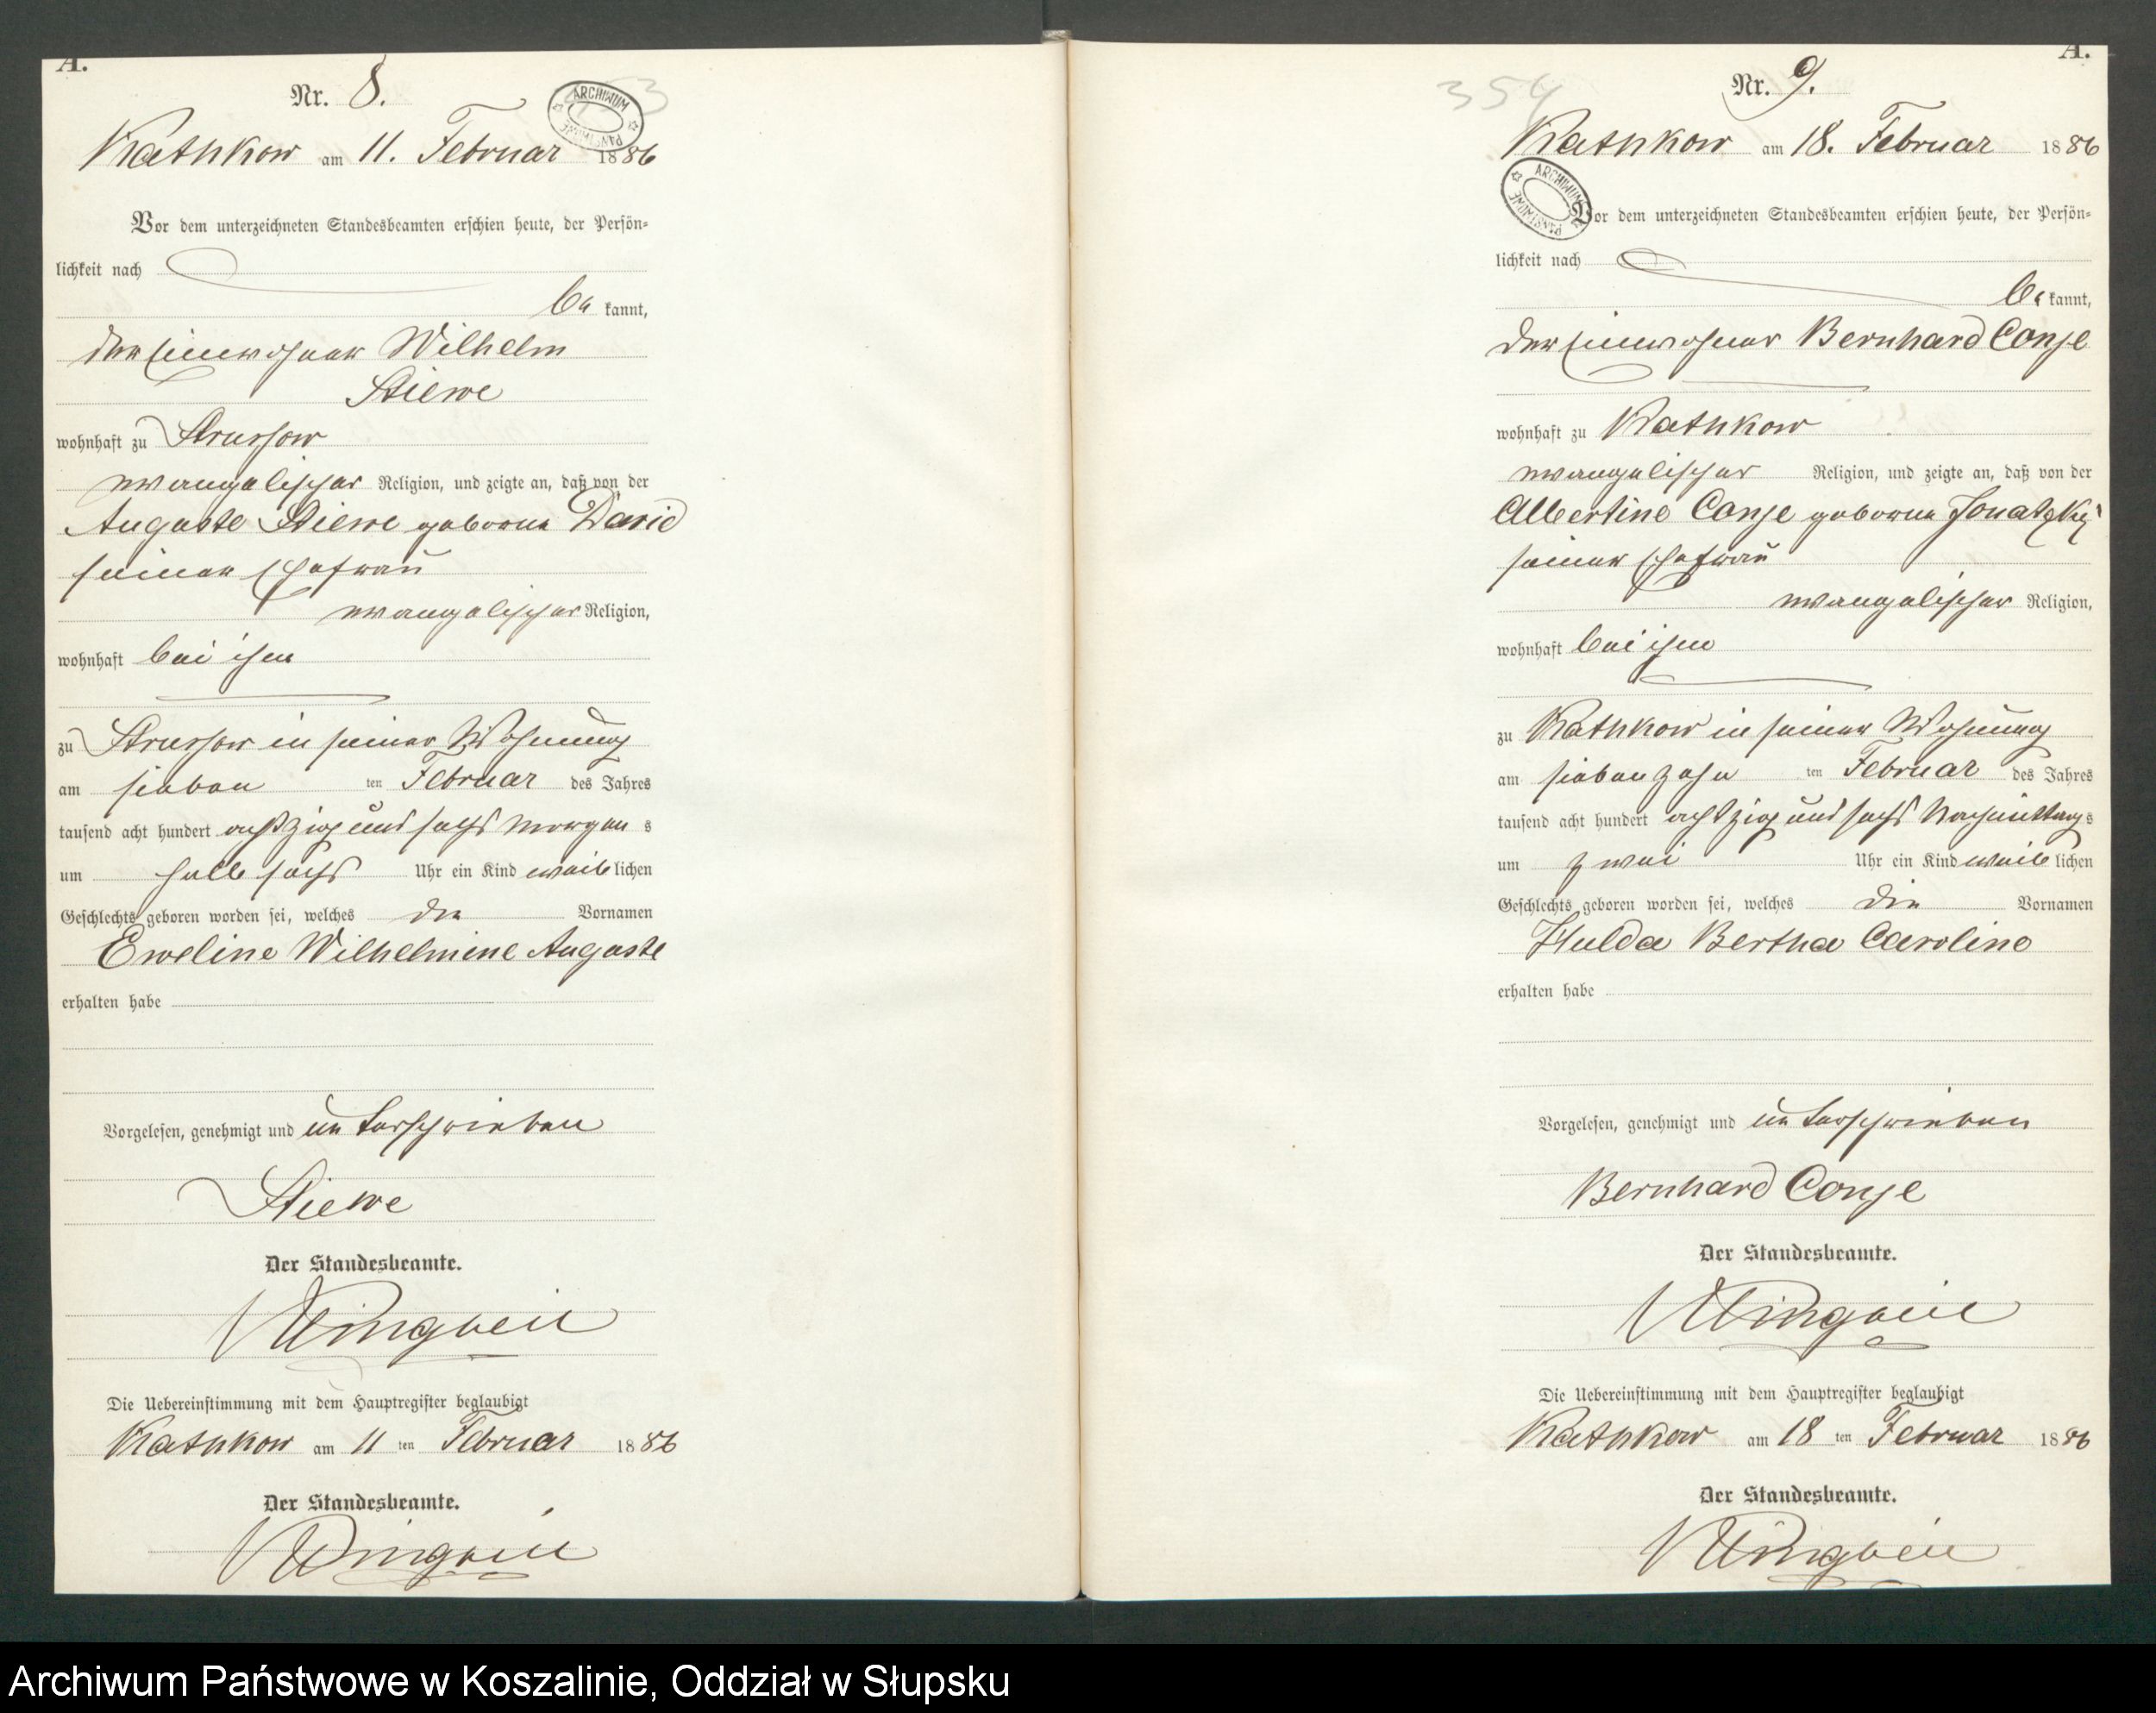 A.
Nr. 8.
ARCHIWUM PAŃSTWOWE
Kathkow am 11. Februar 1886
Vor dem unterzeichneten Standesbeamten erschien heute, der Persön-
lichkeit nach
be kannt,
der Einwohner Wilhelm
Stiewe
wohnhaft zu Strussow
evangelischer Religion, und zeigte an, daß von der
Auguste Stiewe geborne David
seiner Ehefrau
evangelischer Religion,
wohnhaft bei ihm
zu Strussow in seiner Wohnung
am sieben ten Februar des Jahres
tausend acht hundert achtzig und sechs Morgens
um halb sechs Uhr ein Kind weiblichen
Geschlechts geboren worden sei, welches die Vornamen
Eweline Wilhelmine Auguste
erhalten habe
Vorgelesen, genehmigt und unterschrieben
Stiewe
Der Standesbeamte.
Die Uebereinstimmung mit dem Hauptregister beglaubigt
Kathkow am 11 ten Februar 1886
Der Standesbeamte.
A.
354
Nr. 9.
Kathkow am 18. Februar 1886
ARCHIWUM PAŃSTWOWE
Vor dem unterzeichneten Standesbeamten erschien heute, der Persön-
lichkeit nach
be kannt,
der Einwohner Bernhard Conje
wohnhaft zu Kathkow
evangelischer Religion, und zeigte an, daß von der
Albertine Conje geborne Jonatzky
seiner Ehefrau
evangelischer Religion,
wohnhaft bei ihm
zu Kathkow in seiner Wohnung
am siebenzehn ten Februar des Jahres
tausend acht hundert achtzig und sechs Nachmittags
um zwei Uhr ein Kind weiblichen
Geschlechts geboren worden sei, welches die Vornamen
Hulda Bertha Caroline
erhalten habe
Vorgelesen, genehmigt und unterschrieben
Bernhard Conje
Der Standesbeamte.
Die Uebereinstimmung mit dem Hauptregister beglaubigt
Kathkow am 18 ten Februar 1886
Der Standesbeamte.
Archiwum Państwowe w Koszalinie, Oddział w Słupsku